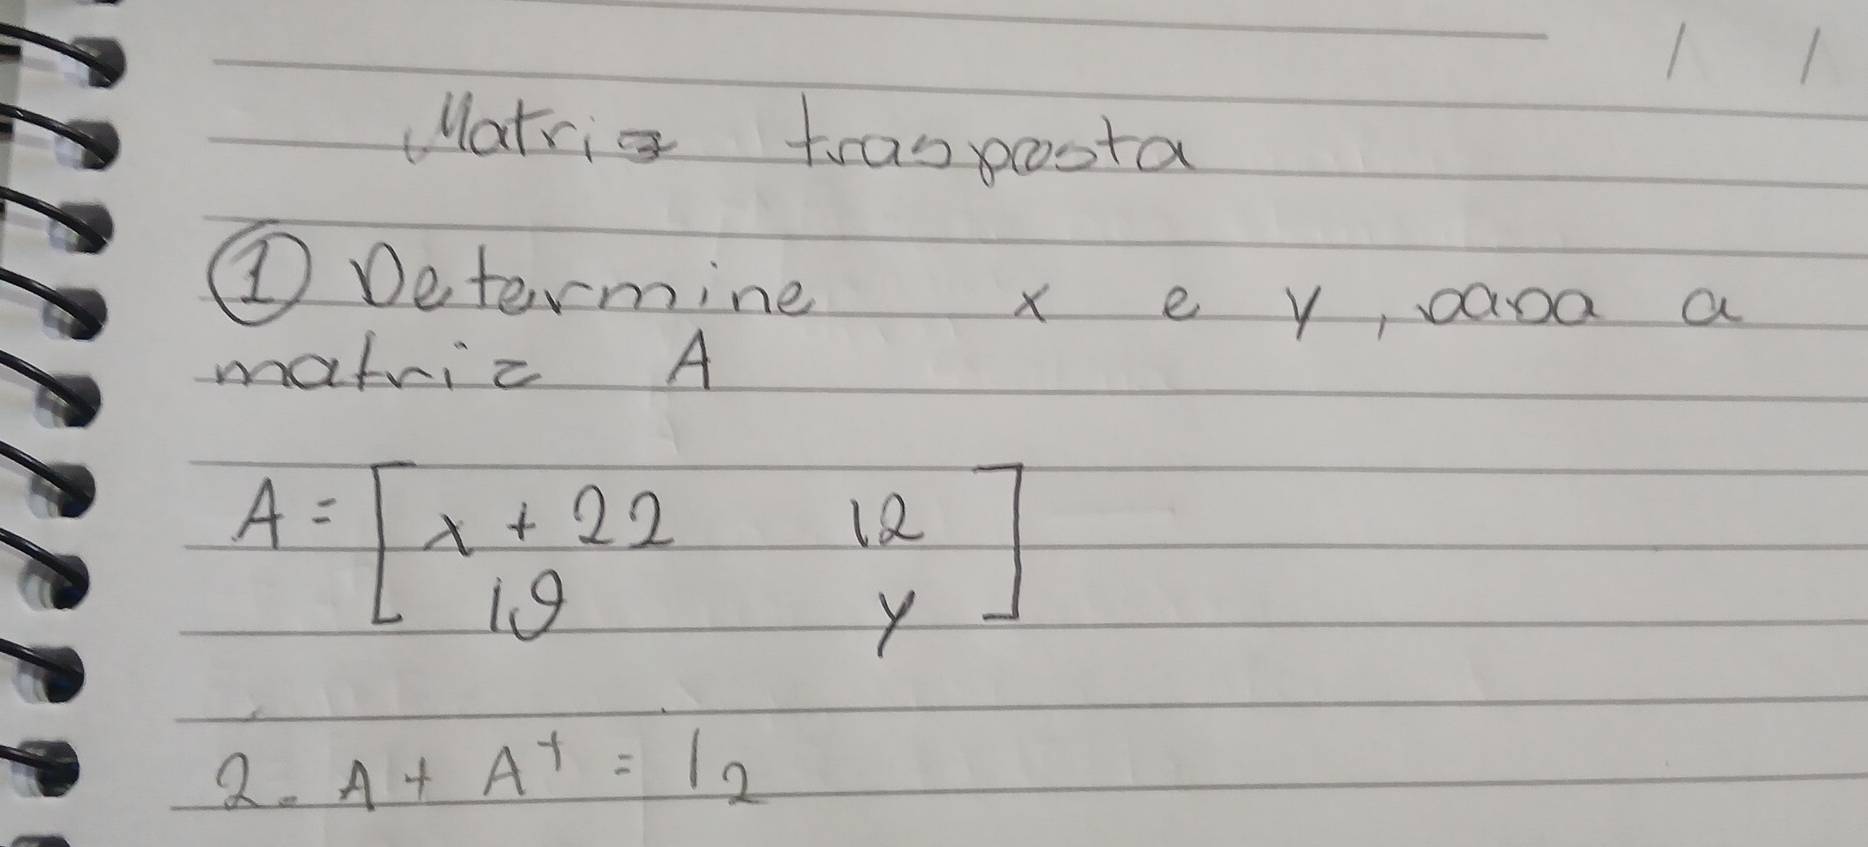 Matriz trasposta
① Determine x e y, para a
matriz A
A = [ x + 22 12
19 y ]
2. A + A^t = I₂